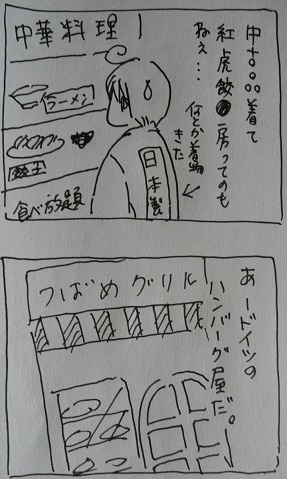 着て
紅虎餃房ってのも
ねぇ…
何とか着物
きた
日本製
中華料理
ラーメン
食べ放題
あードイツの
ハンバーグ屋だ。
つばめグリル